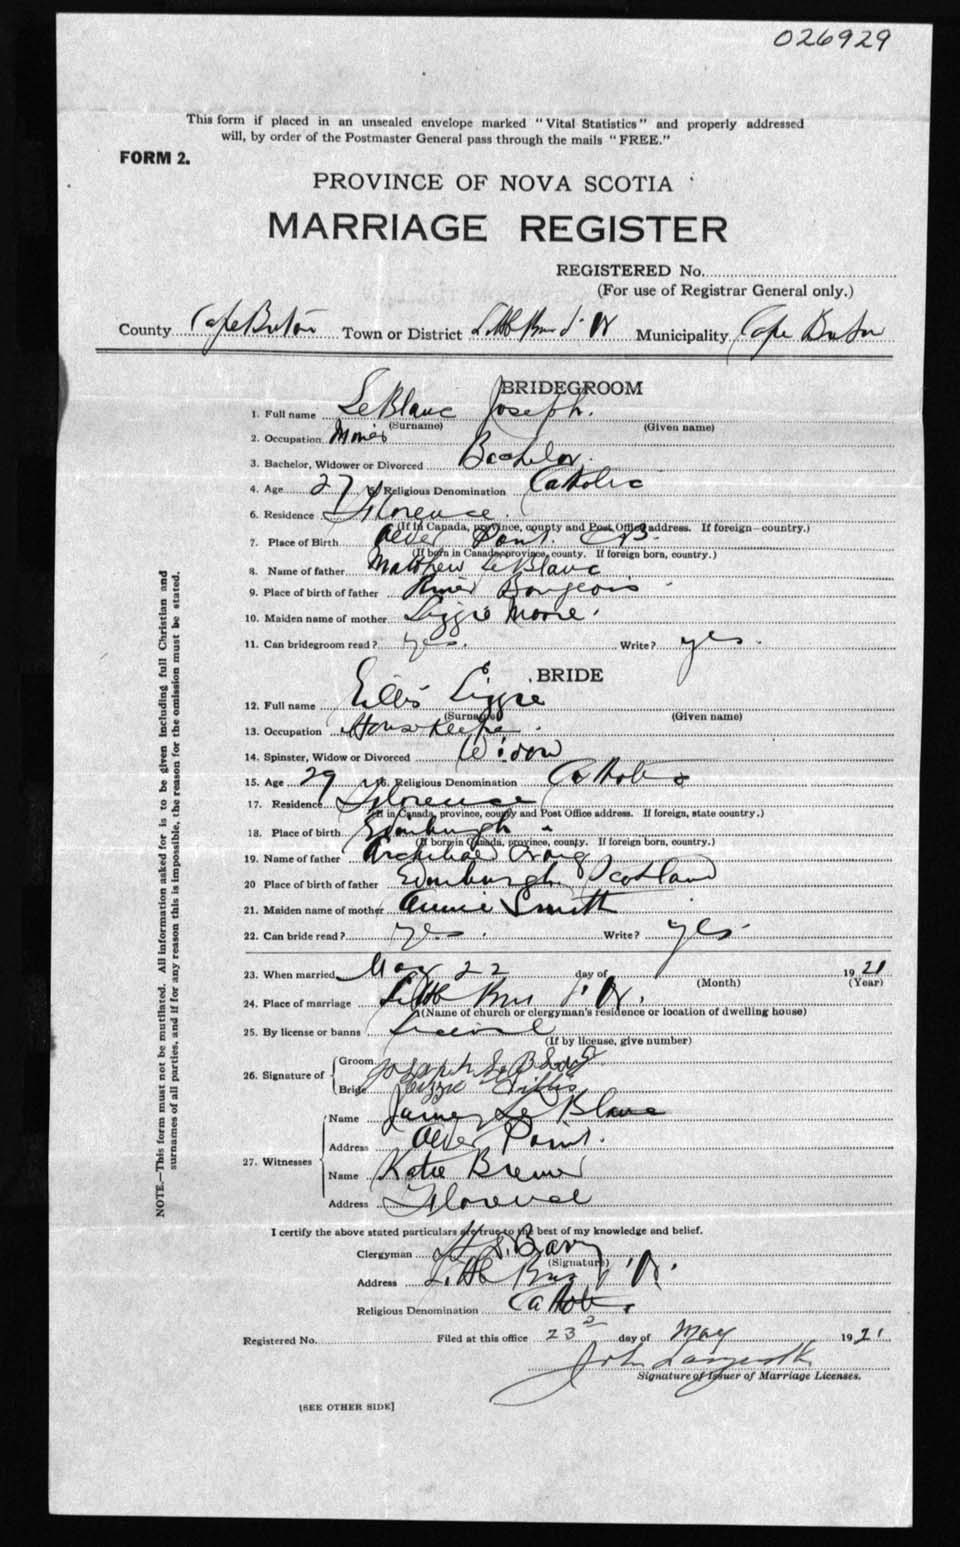 026929
This form if placed in an unsealed envelope marked "Vital Statistics" and properly addressed
will, by order of the Postmaster General pass through the mails "FREE."
FORM 2.
PROVINCE OF NOVA SCOTIA
MARRIAGE REGISTER
REGISTERED No.
(For use of Registrar General only.)
County Cape Breton Town or District Little Bras d'Or Municipality Cape Breton
BRIDEGROOM
1. Full name LeBlanc Joseph.
(Surname) (Given name)
2. Occupation Miner
3. Bachelor, Widower or Divorced Bachelor.
4. Age 27 5. Religious Denomination Catholic
6. Residence Florence.
(If in Canada, province, county and Post Office address. If foreign—country.)
7. Place of Birth Alder Point. C.B.
(If born in Canada, province, county. If foreign born, country.)
8. Name of father Matthew LeBlanc
9. Place of birth of father River Bourgeois
10. Maiden name of mother Lizzie Moore.
11. Can bridegroom read? yes. Write? yes.
BRIDE
12. Full name Lizzie
(Surname) (Given name)
13. Occupation House Keeper.
14. Spinster, Widow or Divorced Widow
15. Age 29 yrs 16. Religious Denomination Catholic
17. Residence Florence
(If in Canada, province, county and Post Office address. If foreign, state country.)
18. Place of birth Edinburgh
(If born in Canada, province, county. If foreign born, country.)
19. Name of father Archibald Craig
20 Place of birth of father Edinburgh Scotland
21. Maiden name of mother Annie Smith
22. Can bride read? yes. Write? yes.
23. When married May 22 day of 1921
(Month) (Year)
24. Place of marriage Little Bras d'Or.
(Name of church or clergyman's residence or location of dwelling house)
25. By license or banns License
(If by license, give number)
26. Signature of
Groom Joseph LeBlanc
Bride Lizzie
27. Witnesses
Name James LeBlanc
Address Alder Point.
Name Katie
Address Florence
I certify the above stated particulars are true to the best of my knowledge and belief.
Clergyman
(Signature)
Address Little Bras d'Or.
Religious Denomination Catholic
Registered No. Filed at this office 23 day of May 1921
John
Signature of Issuer of Marriage Licenses.
[SEE OTHER SIDE]
NOTE.—This form must not be mutilated. All information asked for is to be given including full Christian and
surnames of all parties, and if for any reason this is impossible, the reason for the omission must be stated.